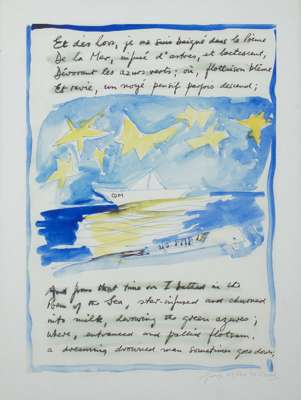 Et dès lors, je me suis baigné dans le Poème
De la Mer, infusé d'astres, et lactescent,
Dévorant les azurs verts; où, flottaison blême
Et ravie, un noyé pensif parfois descend;
COM
And from that time on I bathed in the
Poem of the Sea, star-infused and churned
into milk, devouring the green azures;
where, entranced and pallid flotsam,
a dreaming drowned man sometimes goes down;